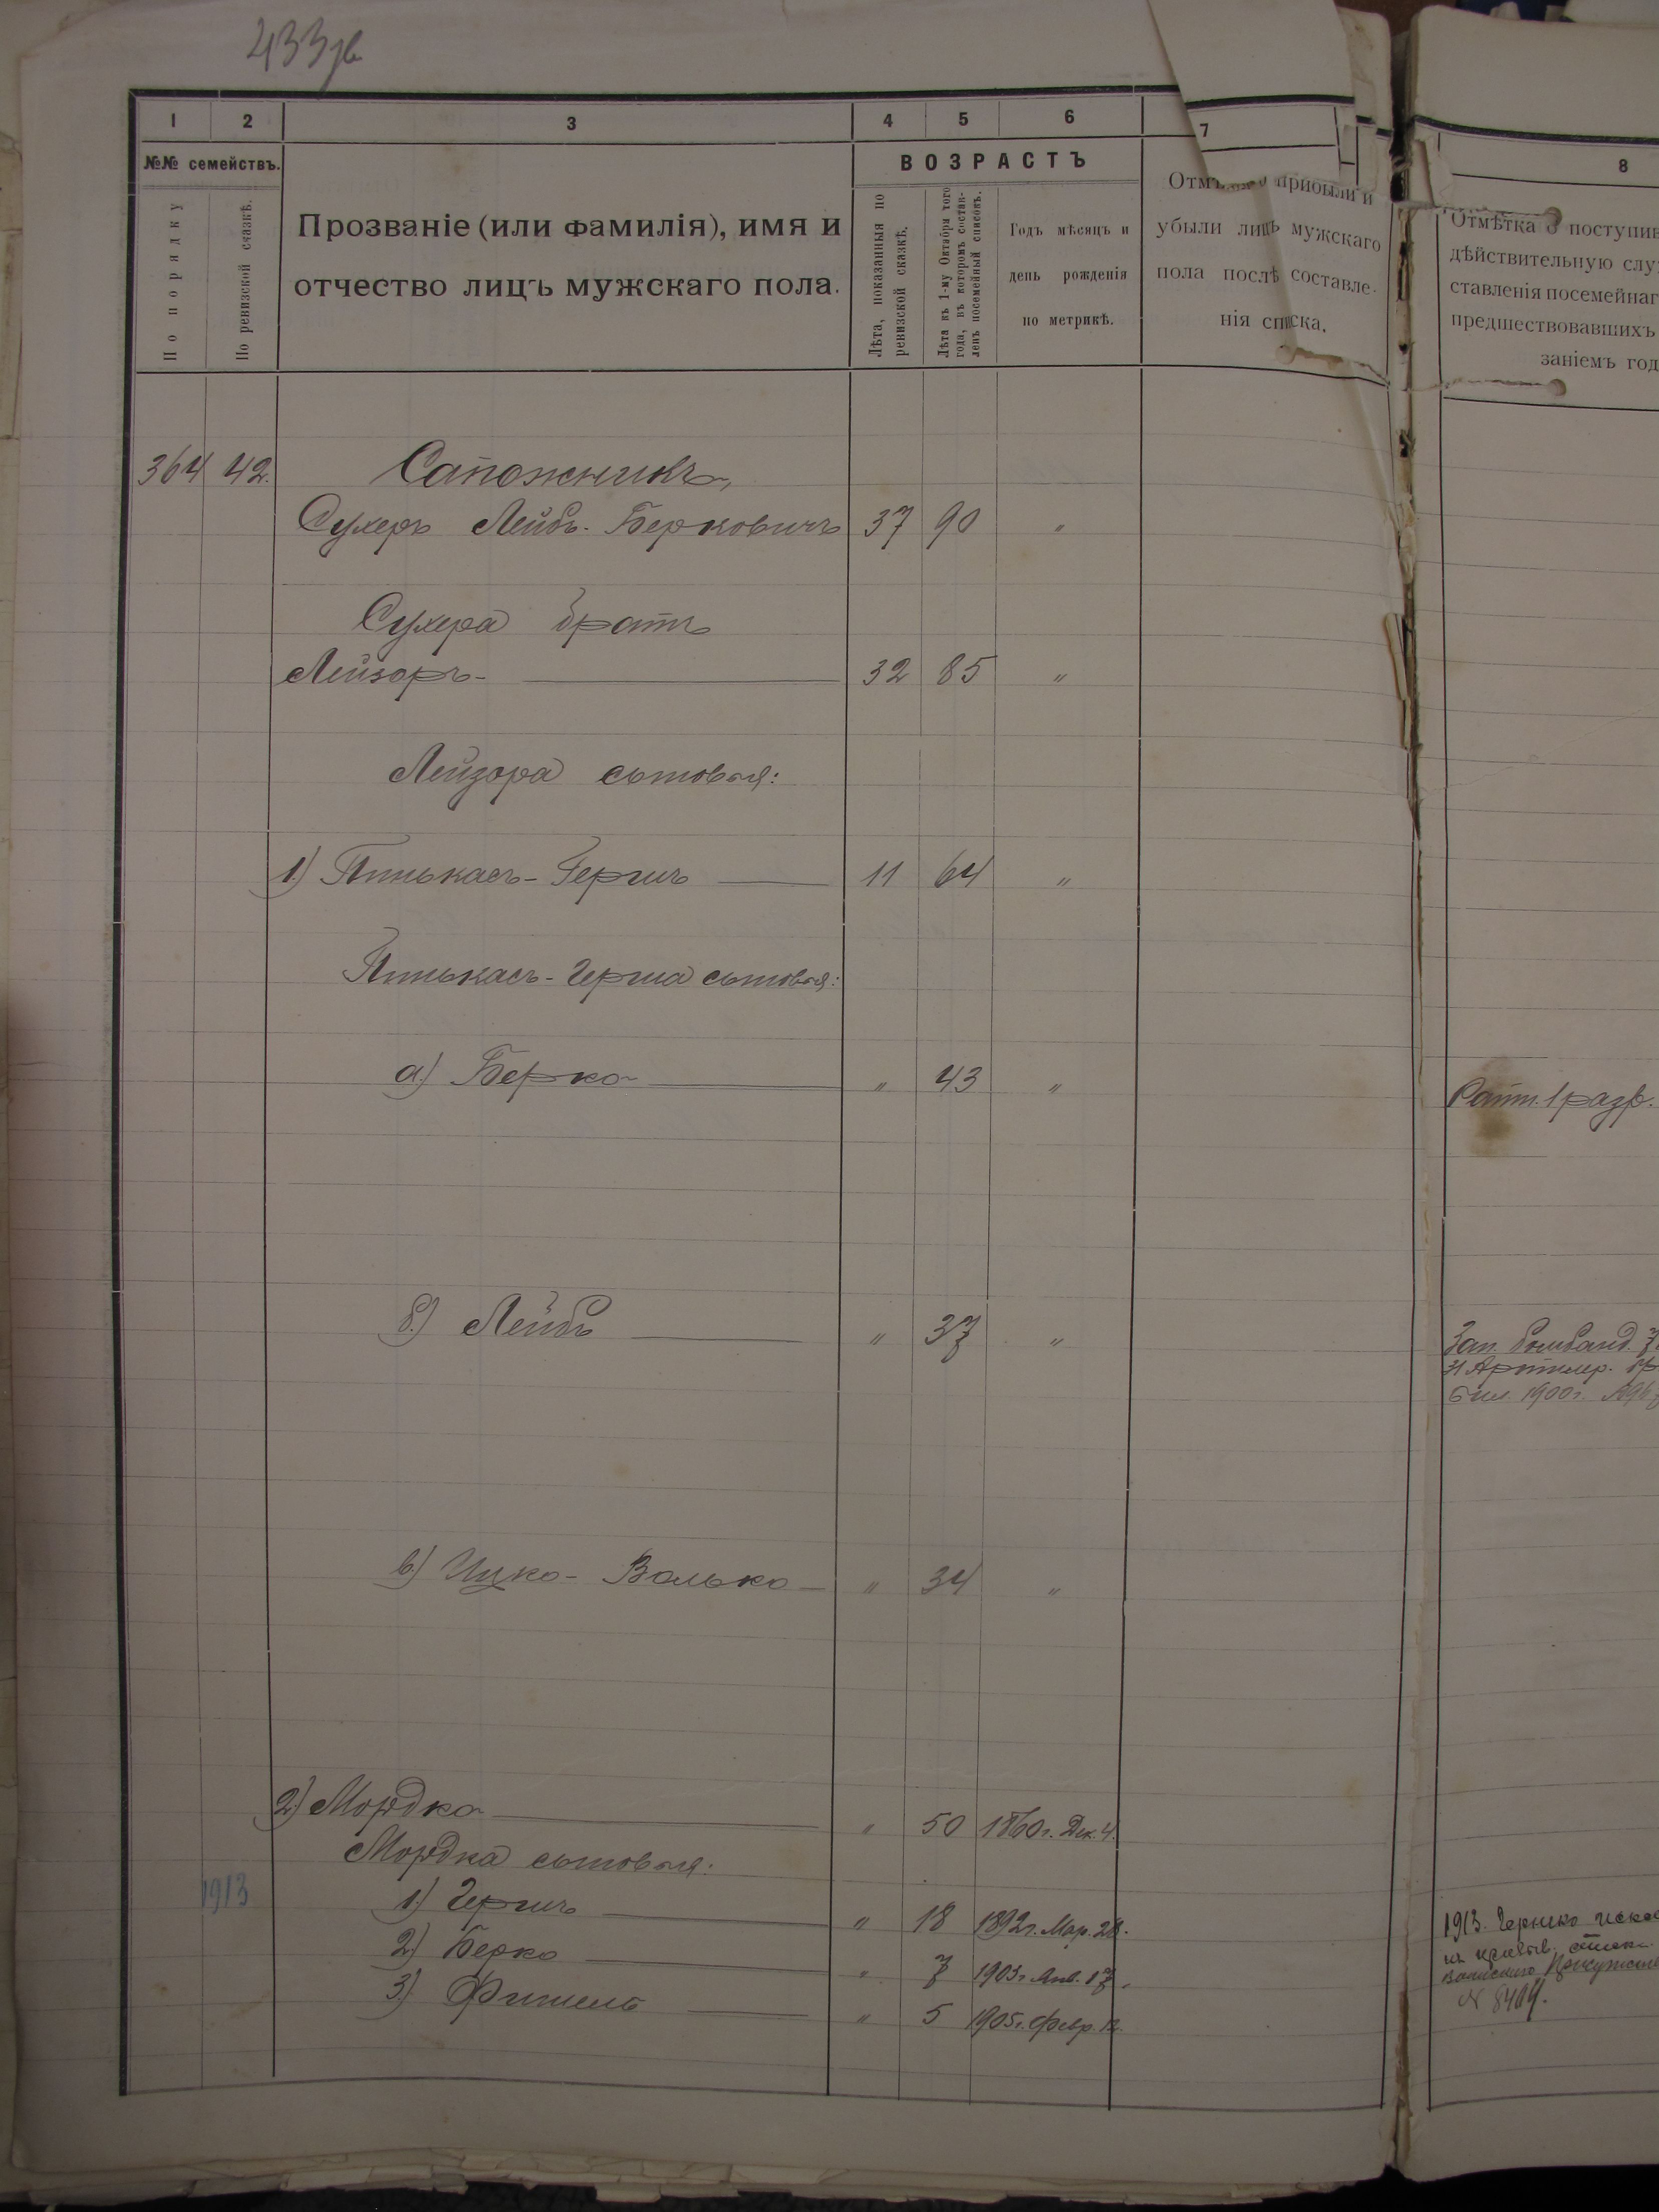 433
1 2 3 4 5 6 7 8
№№ семействъ.
По порядку
По ревизской сказкѣ.
Прозваніе (или фамилія), имя и
отчество лицъ мужскаго пола.
ВОЗРАСТЪ
Лѣта, показанныя по
ревизской сказкѣ.
Лѣта къ 1-му Октября того
года, въ которомъ состав-
ленъ посемейный списокъ.
Годъ мѣсяцъ и
день рожденія
по метрикѣ.
прибыли и
убыли лицъ мужскаго
пола послѣ составле-
нія списка.
Отмѣтка о поступив
дѣйствительную слу
ставленія посемейнаг
предшествовавшихъ
заніемъ год
364 42. Сапожникъ,
Сухеръ Лейбъ. Берковичъ 37 90 "
Сухера братъ
Лейзоръ- 32 85 "
Лейзора сыновья:
1) Пинькасъ-Гершъ 11 64 "
Пинькасъ-Герша сыновья:
а.) Берко " 43 "
Ратн. 1 разр.
б.) Лейбъ " 37 "
Зап. бомбанд.
31 Артилер. бр
1900 г.
в.) Ицко-Волько " 34 "
2.) Мордко " 50 1860 г. Дек. 4.
Мордка сыновья:
1913 1.) Гершъ " 18 1892 г. Мар. 28.
2.) Берко " 7 1903 г. Янв. 17.
3.) Фишель " 5 1905 г. Февр. 12.
1913. Гершко
№ 8409.